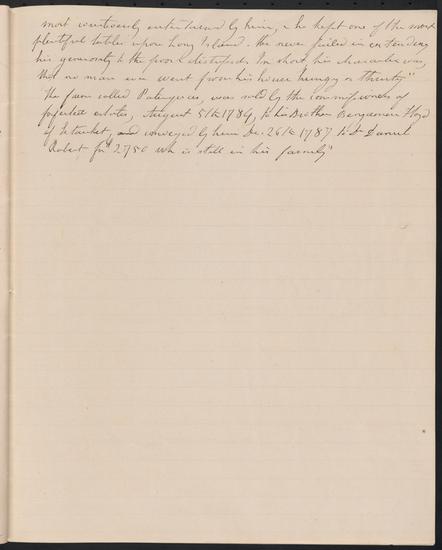 most courteously entertained by him, he kept one of the most
plentiful tables upon Long Island. He never failed in extending
his generosity to the poor & distressed. In short his character was,
that no man ever went from his house hungry or thirsty"
The farm called Patenquos, was sold by the commissioners of
forfeited estates, August 5th 1784, to his Brother Benjamin Floyd
of Setauket, and conveyed by him De. 26th 1787 to Dr Daniel
Robert for 2750 wh is still in his family"